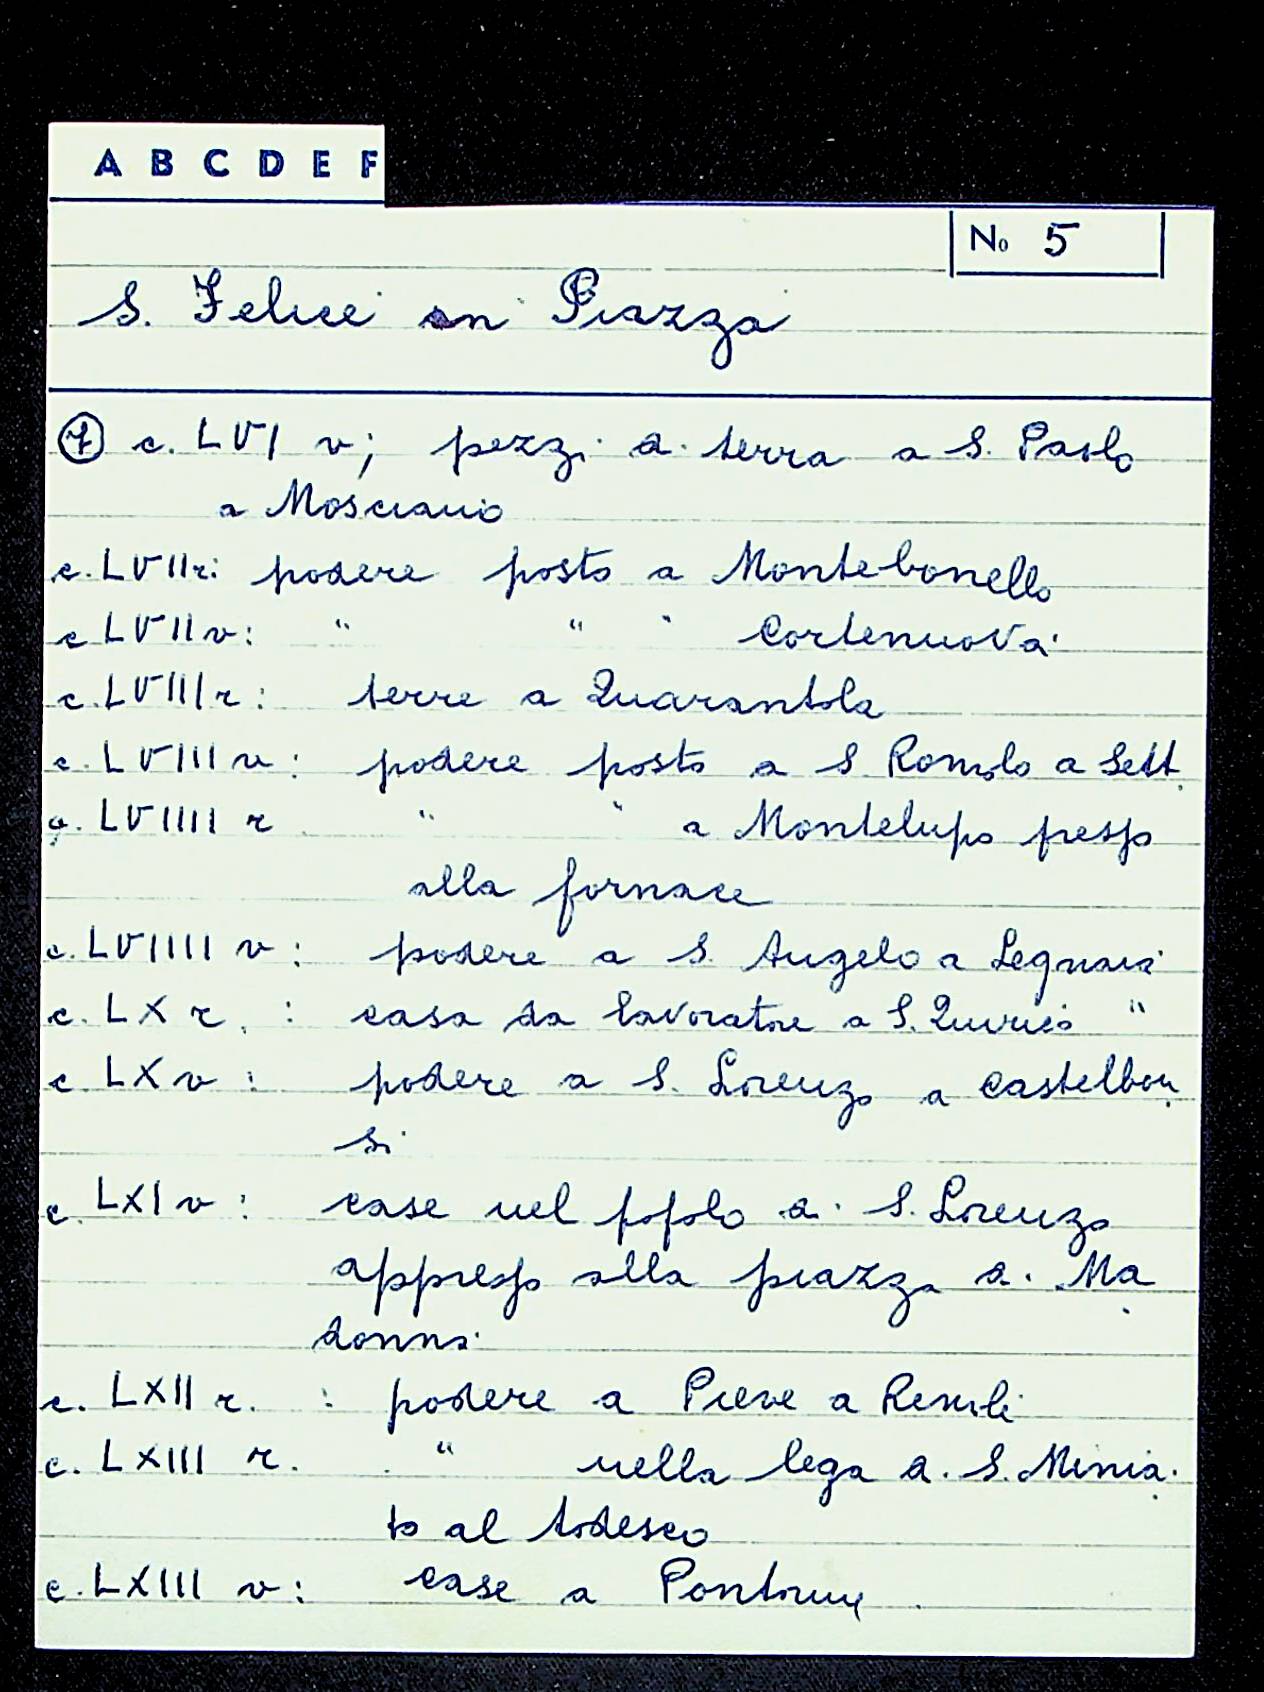 A B C D E F
No 5
S. Felice in Piazza
7 c. LVI v; pezzi di terra a S. Paolo
a Mosciano
c. LVII r: podere posto a Montebonello
c LVII v: " " " Cortenuova
c. LVIII r: terre a Quarantola
c. LVIII v: podere posto a S. Romolo a Sett.
c. LVIIII r " " a Montelupo presso
alla fornace
c. LVIIII v: podere a S. Angelo a Legnaia
c. LX r. : casa da lavoratore a S. Quirico "
c LX v : podere a S. Lorenzo a Castelbon
si
c. LXI v : case nel popolo di S. Lorenzo
appresso alla piazza di Ma
donna
c. LXII r. : podere a Pieve a Remoli
c. LXIII r. " nella lega di S. Minia
to al todesco
c. LXIII v: case a